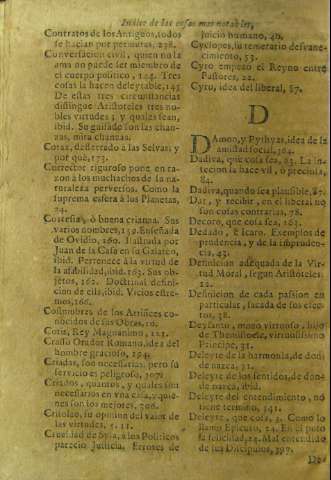 Indice de las cosas mas notables,
Contratos de los Antiguos, todos
se hacian por permutas, 238.
Conversacion civil, quien no la
ama no puede ser miembro de
el cuerpo politico, 144. Tres
cosas la hacen deleytable, 145
De estas tres circunstancias
distingue Aristoteles tres no-
bles virtudes; y quales sean,
ibid. Su guisado son las chan-
zas, mira chanzas.
desterrado a las Selvas; y
por què, 173.
Corrector riguroso pone en ra-
zon à los muchachos de la na-
turaleza perversos. Como la
suprema esfera à los Planetas,
24.
ò buena crianza. Sus
varios nombres, 159. Enseñada
de Ovidio, 160. Ilustrada por
Juan de la Casa en su Galateo,
ibid. Pertenece à la virtud de
la afabilidad, ibid. 163. Sus ob-
jetos, 162. Doctrinal defini-
cion de ella, ibid. Vicios estre-
mos, 166.
Costumbres de los Artifices co-
nocidos de sus Obras, 10.
Cotis, Rey Magnanimo, 211.
Crasso Orador Romano, idea del
hombre gracioso, 194.
Criadas, son necesarias: pero su
servicio es peligroso, 307.
Criados, quantos, y quales son
necesarios en una casa, y quie-
nes son los mejores, 306.
Critolao, su opinion del valor de
las virtudes, 1. 11.
Crueldad de Syla, à los Politicos
parecio Justicia. Errores de
juicio humano, 40.
Cyclopes, su temerario desvane-
cimiento, 53.
Cyro empezò el Reyno entre
Pastores, 22.
Cyro, idea del liberal, 87.
D
Damon, y Pythyas, idea de la
amistad social, 304.
Dadiva, que cosa sea, 83. La in-
tencion la hace vil, ò preciosa,
84.
Dadiva, quando sea plausible, 87.
Dar, y recibir, en el liberal no
son cosas contrarias, 78.
Decoro, que cosa sea, 163.
Dedalo, è Icaro. Exemplos de
prudencia, y de la impruden-
cia, 43.
Definicion adequada de la Vir-
tud Moral, segun Aristoteles,
22.
Definicion de cada passion en
particular, sacada de sus efec-
tos, 38.
mozo virtuoso, hijo
de virtuosissimo
Principe, 31.
Deleyte de la harmonia, de don-
de nazca, 31.
Deleyte de los sentidos, de don-
de nazca, ibid.
Deleyte del entendimiento, no
tiene termino, 141.
Deleyte, que cosa, 3. Como lo
llamò Epicuro, 24. En èl puso
la felicidad, 24. Mal entendido
de sus Discipulos, 397.
De-